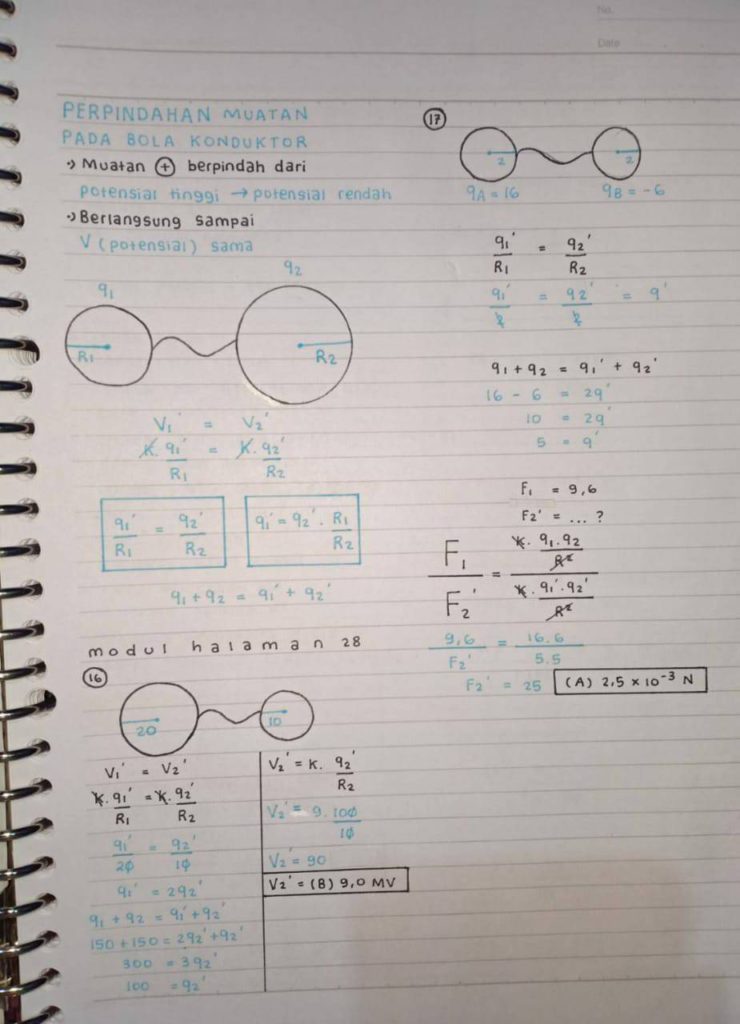 No.
Date
PERPINDAHAN MUATAN
PADA BOLA KONDUKTOR
→ Muatan ⊕ berpindah dari
potensial tinggi → potensial rendah
→ Berlangsung sampai
V (potensial) sama
q1
q2
R1
R2
V1' = V2'
K. q1' / R1 = K. q2' / R2
q1' / R1 = q2' / R2
q1' = q2' . R1 / R2
q1 + q2 = q1' + q2'
modul halaman 28
16
20
10
V1' = V2'
K. q1' / R1 = K. q2' / R2
q1' / 20 = q2' / 10
q1' = 2q2'
q1 + q2 = q1' + q2'
150 + 150 = 2q2' + q2'
300 = 3q2'
100 = q2'
V2' = K. q2' / R2
V2' = 9. 100 / 10
V2' = 90
V2' = (B) 9,0 MV
17
2
2
qA = 16
qB = -6
q1' / R1 = q2' / R2
q1' / 2 = q2' / 2 = q'
q1 + q2 = q1' + q2'
16 - 6 = 2q'
10 = 2q'
5 = q'
F1 = 9,6
F2' = ... ?
F1 / F2' = K. q1 . q2 / R² / K. q1' . q2' / R²
9,6 / F2' = 16.6 / 5.5
F2' = 25
(A) 2,5 x 10⁻³ N